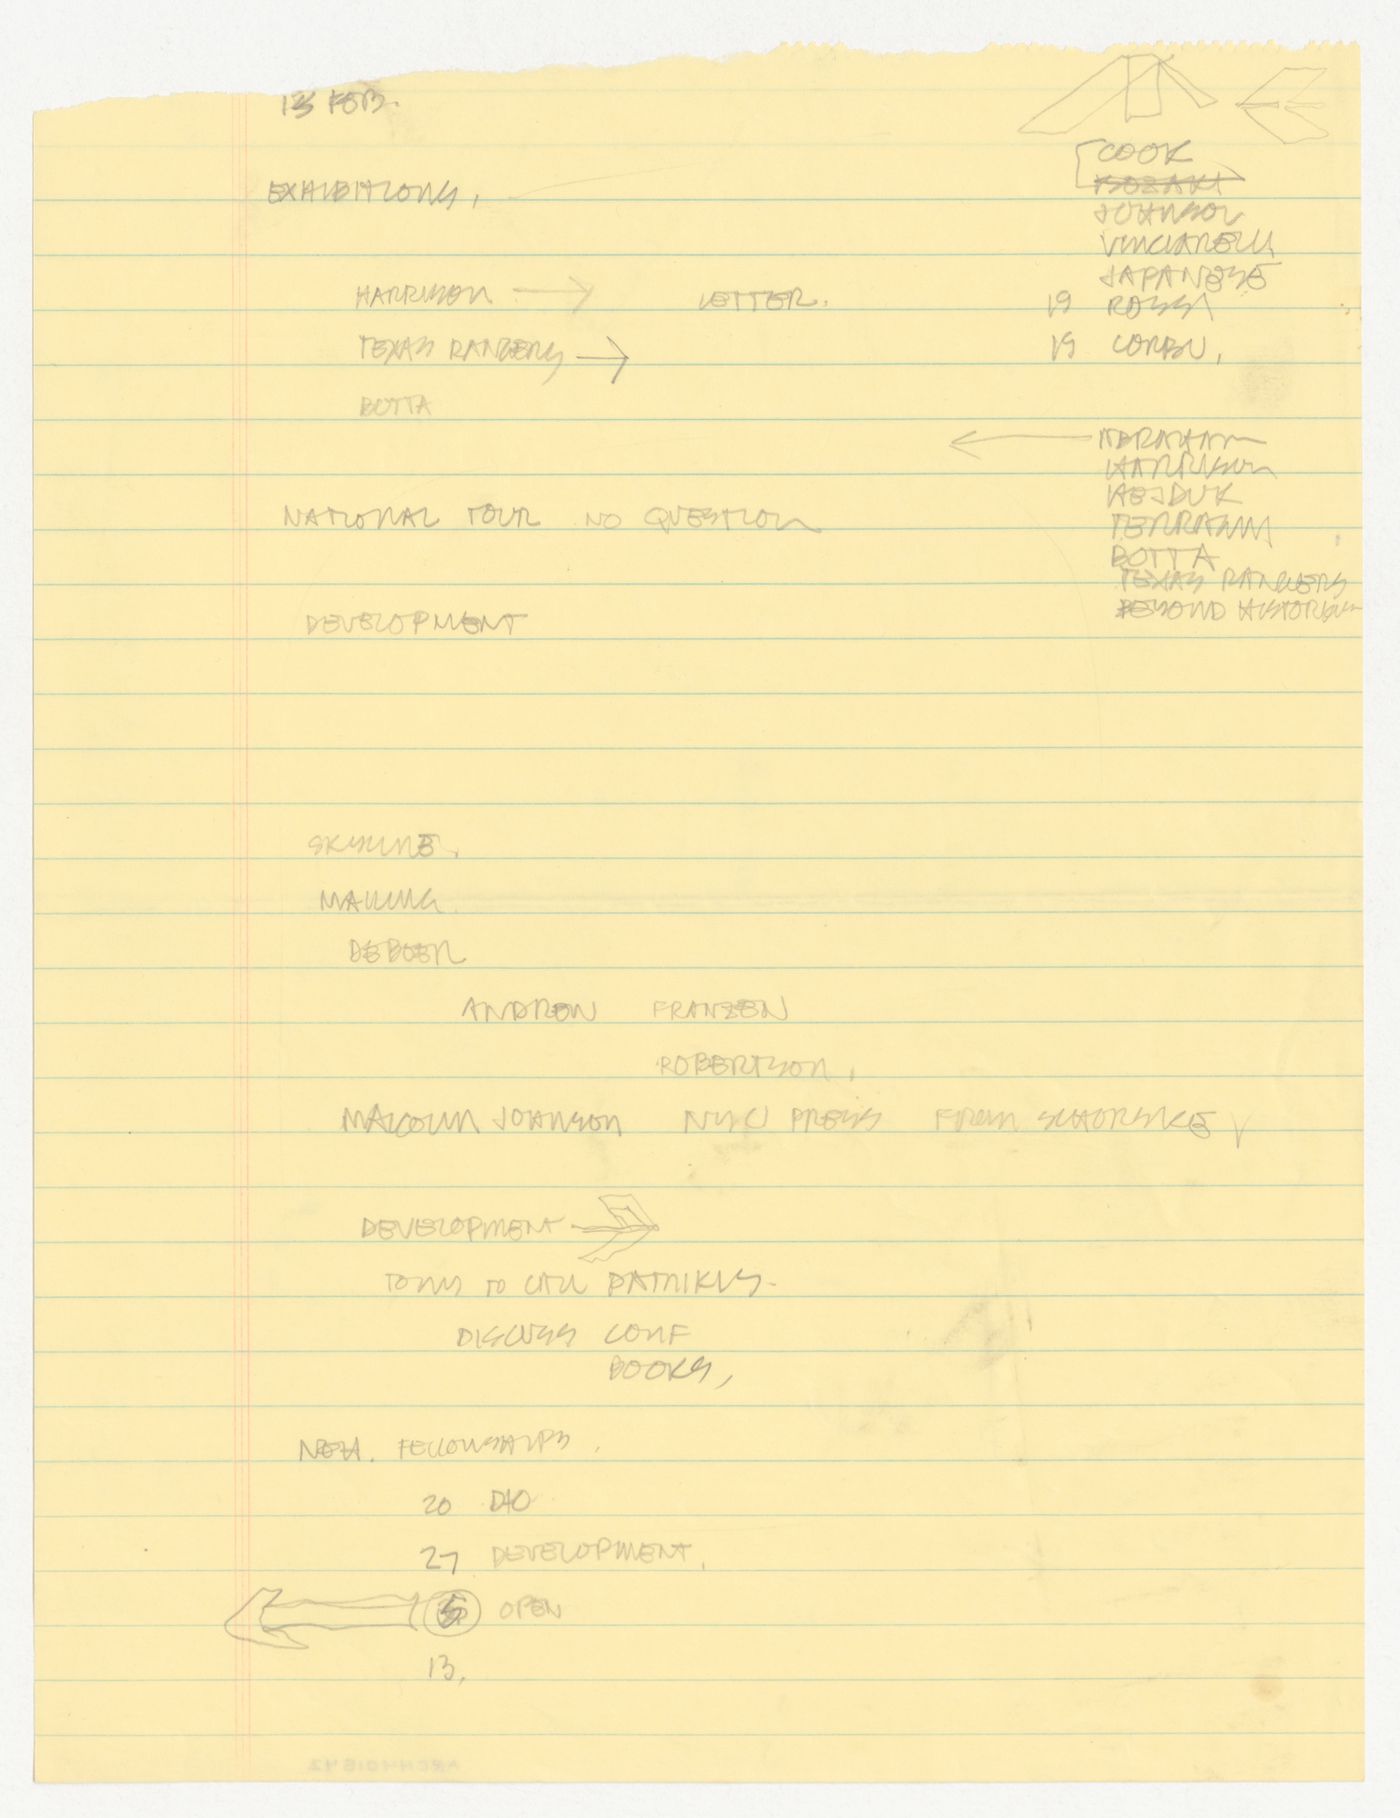 13 FEB.
EXHIBITIONS,
HARRISON → LETTER.
TEXAS RANGERS →
BOTTA
COOK
ISOZAKI
JOHNSON
VINCIARELLI
JAPANESE
19 ROSSI
19 CORBU,
← ABRAHAM
HARRISON
HEJDUK
TERRAGNI
BOTTA
TEXAS RANGERS
BEYOND HISTORICISM
NATIONAL TOUR NO QUESTION
DEVELOPMENT
SKYLINE.
MAILING.
DEBOER
ANDREW FRANZEN
ROBERTSON,
MALCOLM JOHNSON NYU PRESS FROM SCHORSKE
DEVELOPMENT
TONY TO CALL
DISCUSS CONF
BOOKS,
NEH. FELLOWSHIPS.
20
27 DEVELOPMENT.
5 OPEN
13.
ARCH401642